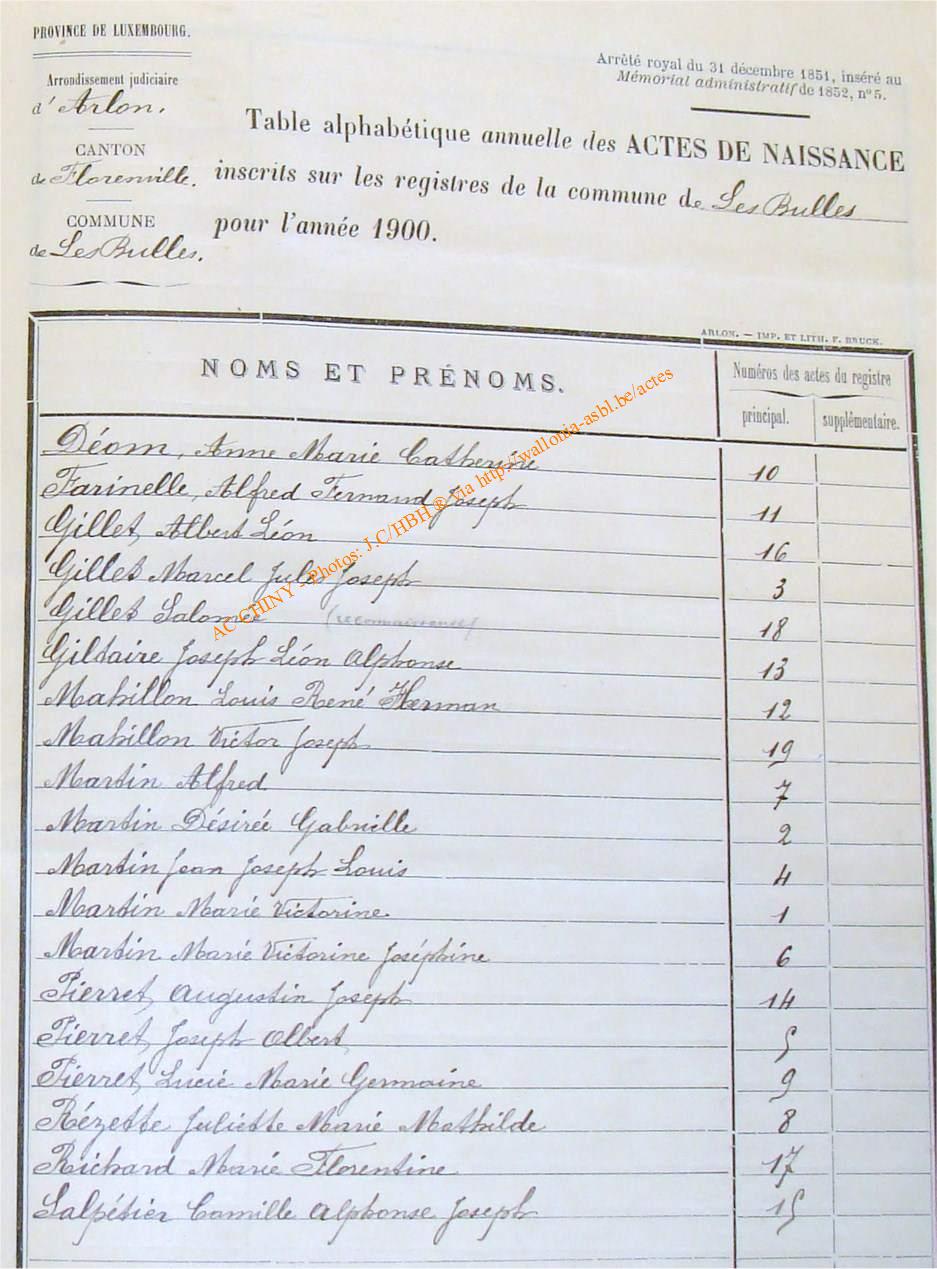 PROVINCE DE LUXEMBOURG.
Arrondissement judiciaire
d'Arlon.
CANTON
de Florenville.
COMMUNE
de Les Bulles.
Arrêté royal du 31 décembre 1851, inséré au
Mémorial administratif de 1852, n° 5.
Table alphabétique annuelle des ACTES DE NAISSANCE
inscrits sur les registres de la commune de Les Bulles
pour l'année 1900.
ARLON. — IMP. ET LITH. F. BRUCK.
NOMS ET PRÉNOMS.
Numéros des actes du registre
principal. supplémentaire.
Déom, Anne Marie Catherine 10
Farinelle, Alfred Fernand Joseph 11
Gillet, Albert Léon 16
Gillet Marcel Jules Joseph 3
Gillet Salomée (reconnaissance) 18
Giltaire Joseph Léon Alphonse 13
Mahillon Louis René Herman 12
Mahillon Victor Joseph 19
Martin Alfred 7
Martin Désirée Gabrielle 2
Martin Jean Joseph Louis 4
Martin Marie Victorine 1
Martin Marie Victorine Joséphine 6
Pierret, Augustin Joseph 14
Pierret, Joseph Albert 5
Pierret, Lucie Marie Germaine 9
Rézette Juliette Marie Mathilde 8
Richard Marie Florentine 17
Salpétier Camille Alphonse Joseph 15
AC CHINY - Photos: J.C/HBH ® via http://wallonia-asbl.be/actes